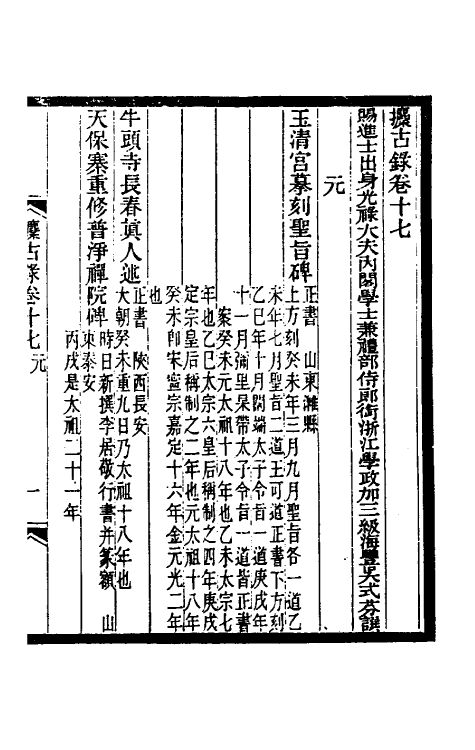 攈古錄卷十七
賜進士出身光祿大夫內閣學士兼禮部侍郎銜浙江學政加三級海豐吳式芬譔
元
玉清宮摹刻聖旨碑
正書　山東濰縣
上方刻癸未年三月九月聖旨各一道乙
未年七月聖旨二道王可道正書下方刻
乙巳年十月闊端太子令旨一道庚戌年
十一月彌里杲帶太子令旨一道皆正書
案癸未元太祖十八年也乙未太宗七
年也乙巳太宗六皇后稱制之四年庚戌
定宗皇后稱制之二年也元太祖十八年
癸未卽宋寧宗嘉定十六年金元光二年
也
牛頭寺長春真人迹
正書　陝西長安
大朝癸未重九日乃太祖十八年也
天保寨重修普淨禪院碑
時日新撰李居敬行書并篆額　山
東泰安
丙戌是太祖二十一年
攈古錄卷十七　元
一